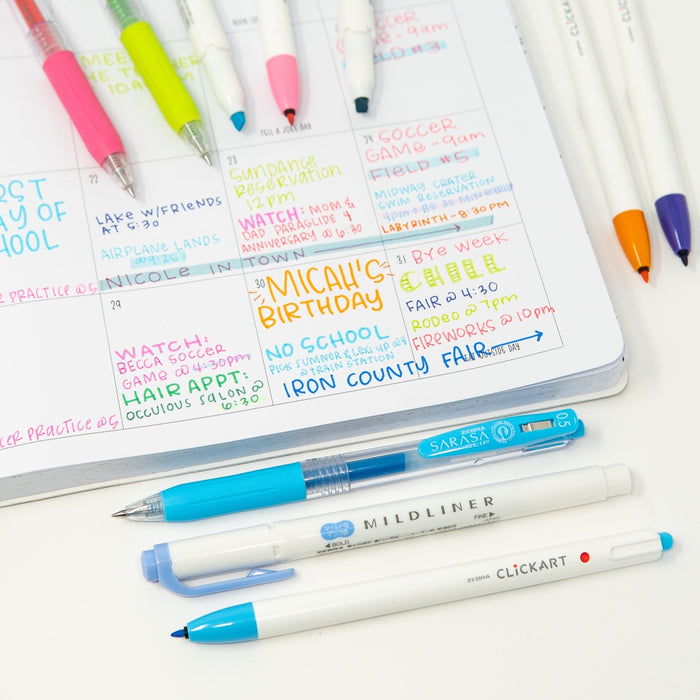 MEE
THE TEACHER
10 AM
TELL A JOKE DAY
SOCCER
GAME - 9am
FIELD #3
RST
AY OF
HOOL
R PRACTICE @5
22
LAKE W/FRIENDS
AT 5:30
AIRPLANE LANDS
@9:25
NICOLE IN TOWN
23
SUNDANCE
RESERVATION
12pm
WATCH: MOM &
DAD PARAGLIDE 4
ANNIVERSARY @ 6:30
24
SOCCER
GAME - 9am
FIELD #5
MIDWAY CRATER
SWIM RESERVATION
4pm → BE 30 MIN early
LABYRINTH - 8:30 PM
CER PRACTICE @5
29
WATCH:
BECCA SOCCER
GAME @ 4:30pm
HAIR APPT:
OCCULOUS SALON @
6:30
30
MICAH'S
BIRTHDAY
NO SCHOOL
PICK SUMMER & LEXI UP @4
@ TRAIN STATION
IRON COUNTY FAIR
31
BYE WEEK
CHILL
FAIR @ 4:30
RODEO @ 7pm
FIREWORKS @ 10pm
EAT OUTSIDE DAY
ZEBRA
SARASA
CLIP
0.5
MILDLINER
BOLD
FINE
ZEBRA
ZEBRA CLiCKART
CLiCKART